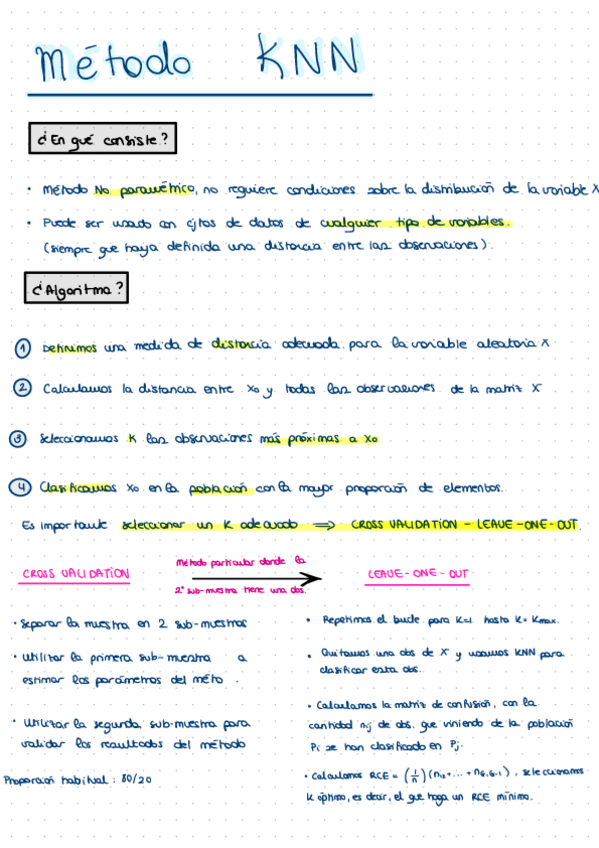 Método KNN
¿En qué consiste?
· Método No paramétrico, no requiere condiciones sobre la distribución de la variable X
· Puede ser usado con cjtos de datos de cualquier tipo de variables.
(siempre que haya definida una distancia entre las observaciones).
¿Algoritmo?
1 Definimos una medida de distancia adecuada para la variable aleatoria X
2 Calculamos la distancia entre X₀ y todas las observaciones de la matriz X
3 Seleccionamos K las observaciones más próximas a X₀
4 Clasificamos X₀ en la población con la mayor proporción de elementos.
Es importante seleccionar un K adecuado ⇒ CROSS VALIDATION - LEAVE-ONE-OUT.
CROSS VALIDATION
Método particular donde la
2ª sub-muestra tiene una obs.
LEAVE-ONE-OUT
· Separar la muestra en 2 sub-muestras
· Utilizar la primera sub-muestra a
estimar los parámetros del méto.
· Utilizar la segunda sub-muestra para
validar los resultados del método
Proporción habitual: 80/20
· Repetimos el bucle para K=1 hasta K=Kmax.
· Quitamos una obs de X y usamos KNN para
clasificar esta obs.
· Calculamos la matriz de confusión, con la
cantidad nij de obs. que viniendo de la población
Pi se han clasificado en Pj.
· Calculamos RCE = (1/n)(n₁₂+...+nG,G-1), seleccionamos
K óptimo, es decir, el que haga un RCE mínimo.